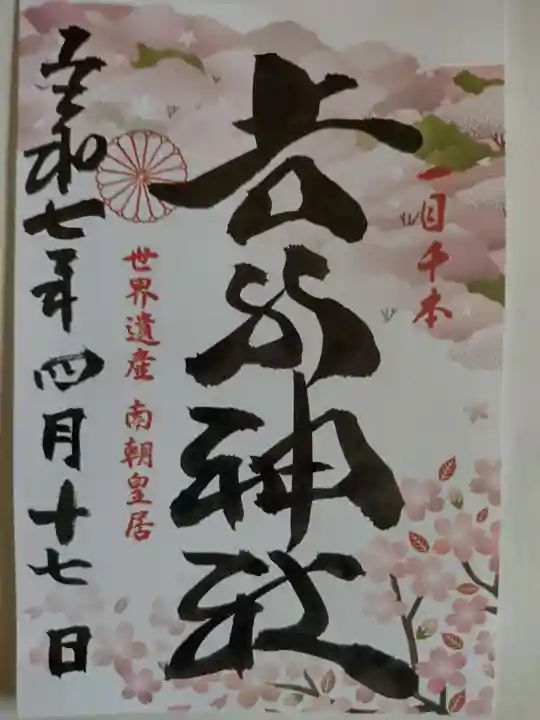 一目千本
吉水神社
世界遺産 南朝皇居
令和七年 四月十七日